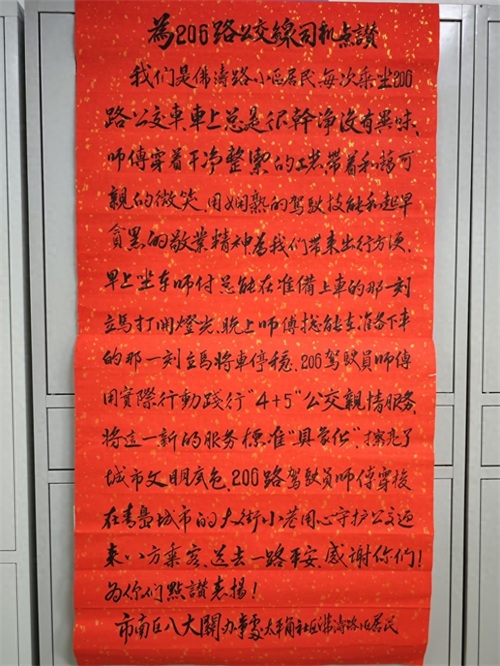 為206路公交線司机点讚
我们是佛涛路小區居民,每次乘坐206
路公交車,車上总是很幹净没有異味,
师傅穿着干净整潔的工装,带着和蔼可
親的微笑,用娴熟的駕駛技能和起早
貪黑的敬業精神為我们带来出行方便,
早上坐车师付总能在准備上車的那一刻
立馬打開燈光,晚上师傅总能在准备下車
的那一刻立馬将車停穩,206駕駛員师傅
用實際行動踐行"4+5"公交親情服務,
将這一新的服务標准"具象化",擦亮了
城市文明底色,206路駕駛員师傅穿梭
在青島城市的大街小巷用心守护公交迎
来八方乘客,送去一路平安,感谢你们!
为你们點讚表揚!
市南区八大關办事處太平角社区涛路居民